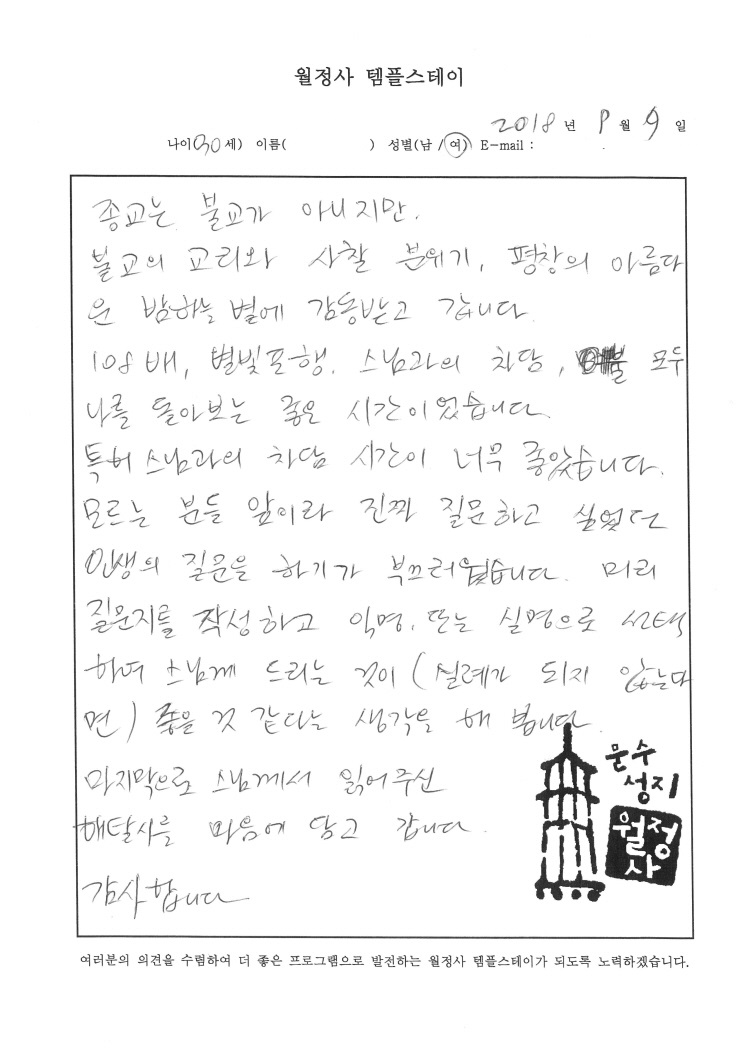 월정사 템플스테이
2018 년 9 월 9 일
나이(30 세) 이름( ) 성별(남 / 여) E-mail :
종교는 불교가 아니지만.
불교의 교리와 사찰 분위기, 평창의 아름다
운 밤하늘 별에 감동받고 갑니다.
108 배, 별빛포행. 스님과의 차담, 모두
나를 돌아보는 좋은 시간이었습니다.
특히 스님과의 차담 시간이 너무 좋았습니다.
모르는 분들 앞이라 진짜 질문하고 싶었던
인생의 질문을 하기가 부끄러웠습니다. 미리
질문지를 작성하고 익명. 또는 실명으로 선택
하여 스님께 드리는 것이 (실례가 되지 않는다
면) 좋을 것 같다는 생각을 해 봅니다.
마지막으로 스님께서 읽어주신
해탈시를 마음에 담고 갑니다.
감사합니다
문수
성지
월정
사
여러분의 의견을 수렴하여 더 좋은 프로그램으로 발전하는 월정사 템플스테이가 되도록 노력하겠습니다.